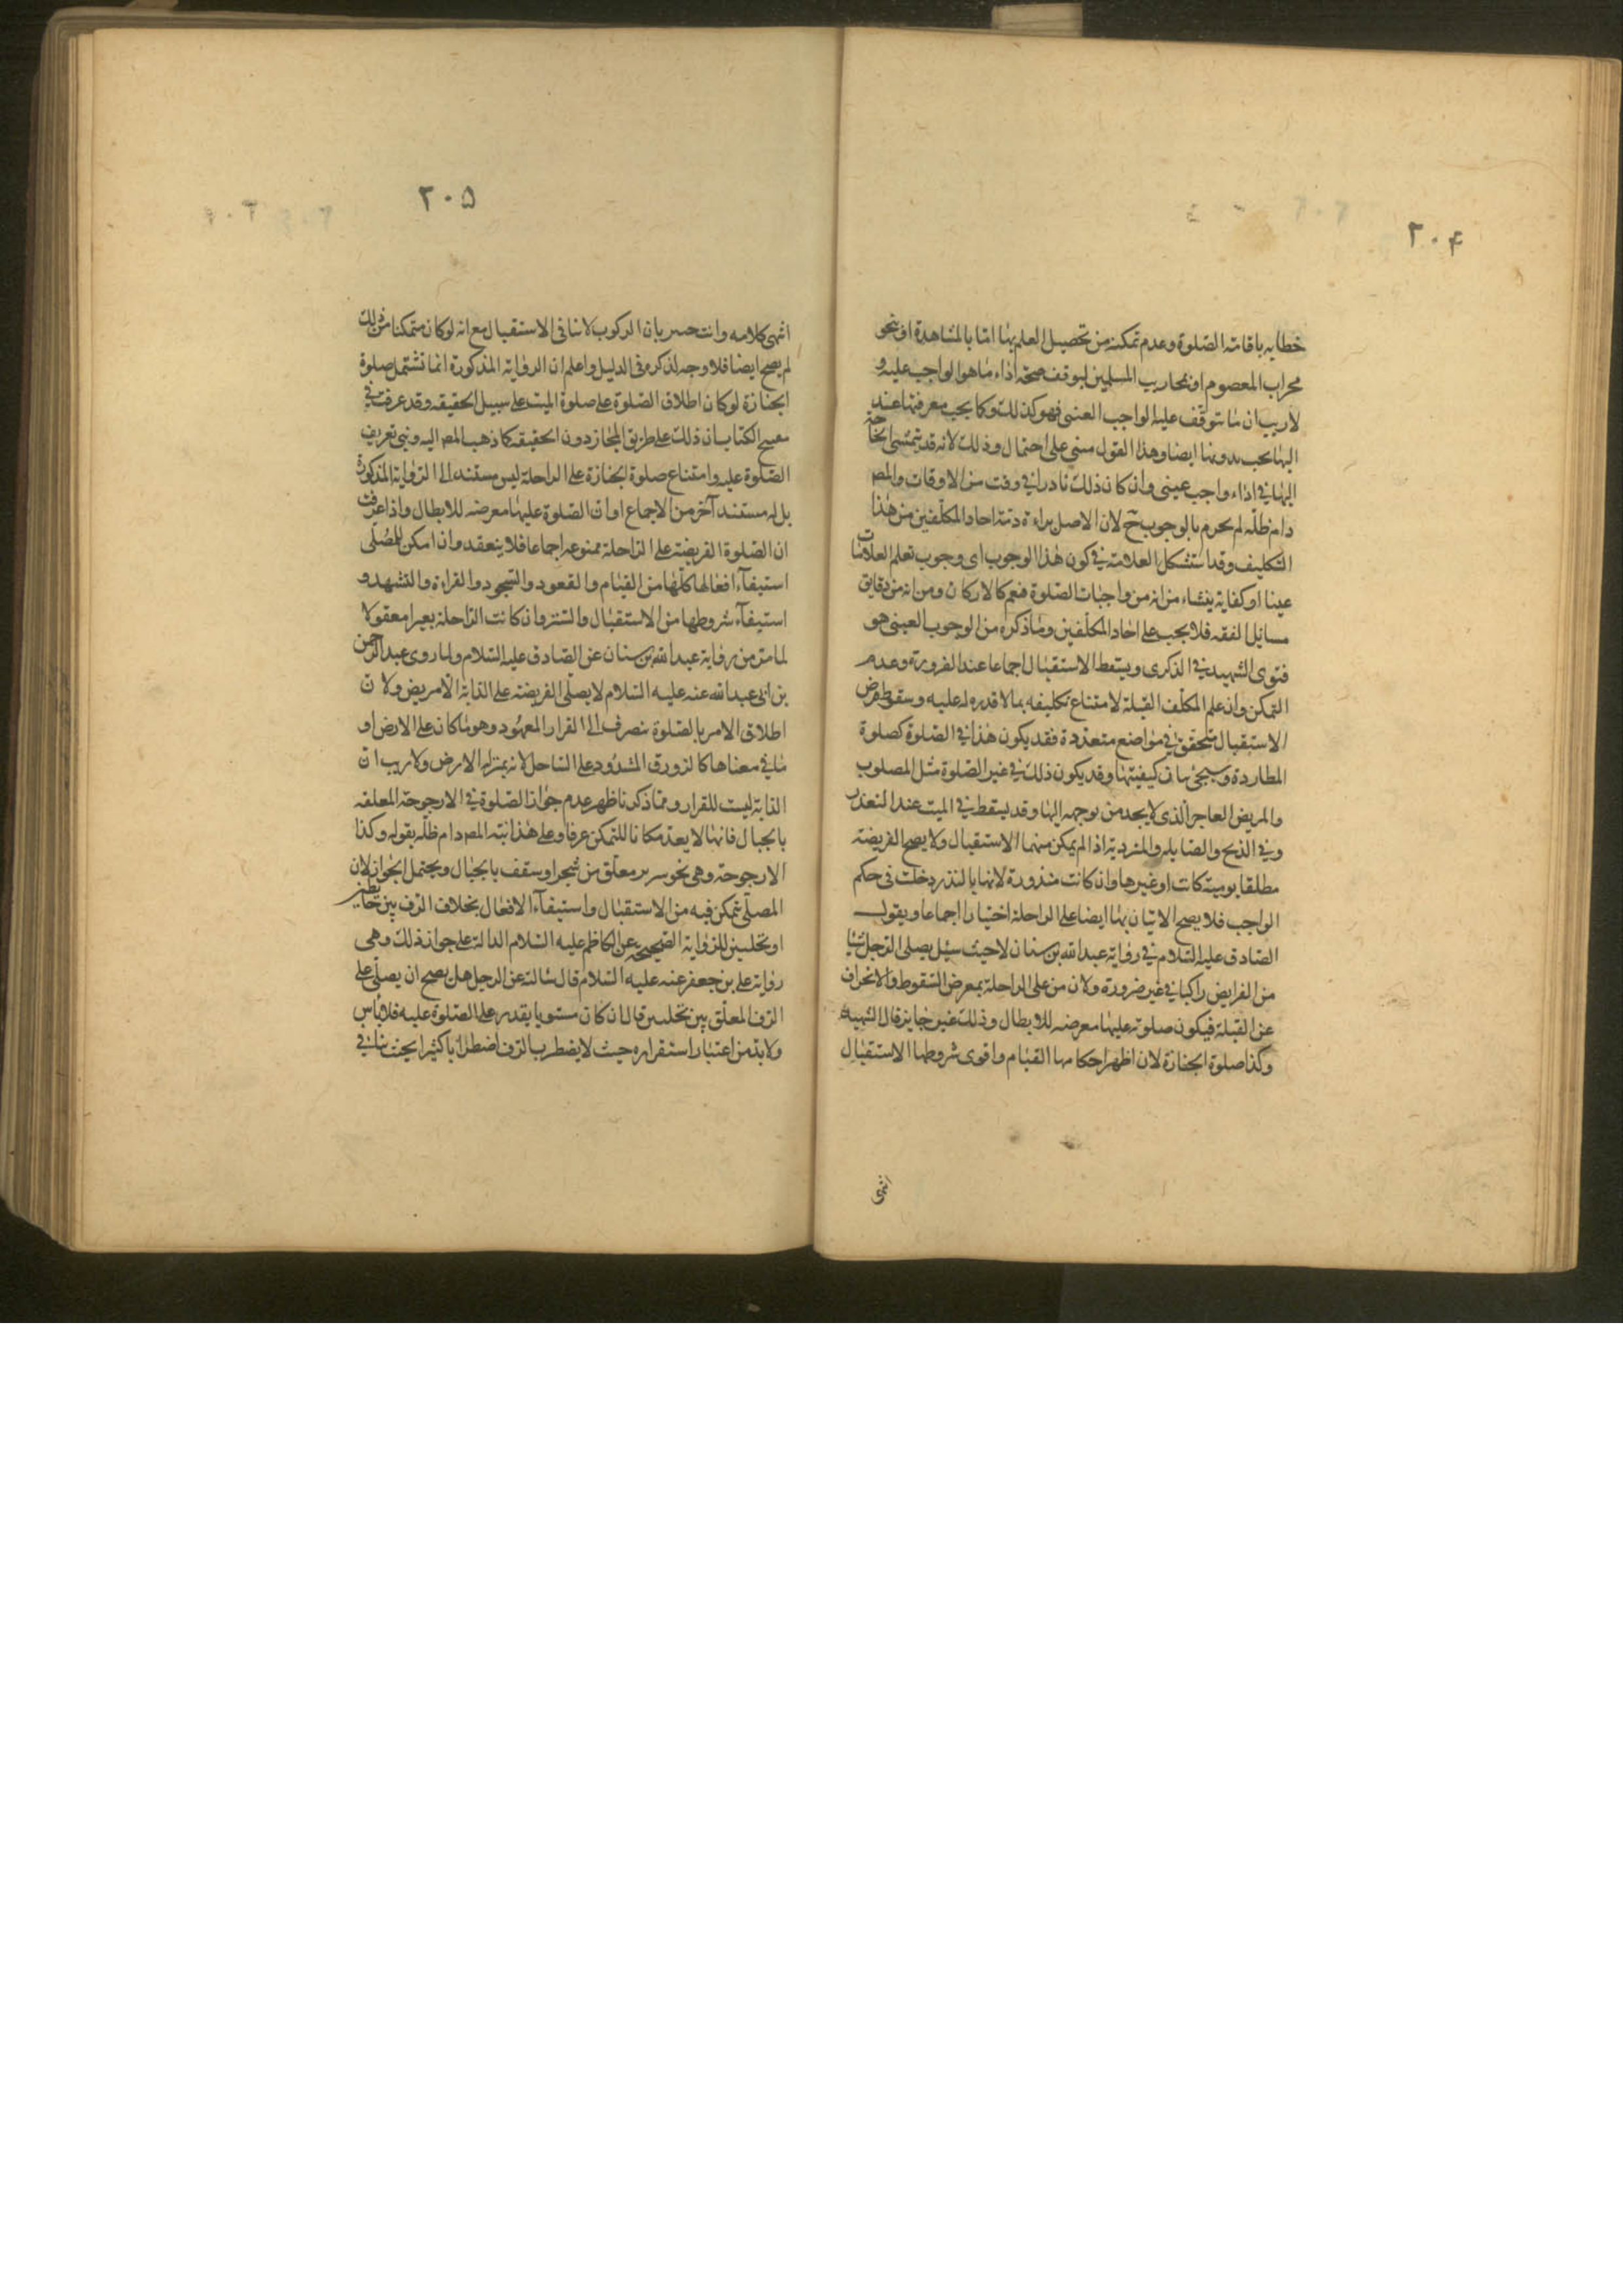 ٢٠۴
خطابه باقامة الصّلوة وعدم تمكنه من تحصيل العلم بها امّا بالمشاهدة او بنحو
محراب المعصوم او محاريب المسلمين لتوقف صحة اداء ما هو الواجب عليه و
لا ريب ان ما يتوقف عليه الواجب العينى فهو كذلك وكما يجب معرفتها عند
اليها يجب بدونها ايضا وهذا القول مبنى على احتمال وذلك لانه قد يتمشى
اليها فى اداء واجب عينى وان كان ذلك نادرا فى وقت من الاوقات والمصـ
دام ظلّه لم يجزم بالوجوب ح لان الاصل براءة ذمة احاد المكلّفين من هذا
التكليف وقد استشكل العلامة فى كون هذا الوجوب اى وجوب تعلم العلامات
عينا او كفاية ينشاء من انه من واجبات الصّلوة فيعم كالاركان ومن انه من دقايق
مسائل الفقه فلا يجب على احاد المكلّفين وما ذكره من الوجوب العينى هو
فتوى الشهيد فى الذكرى ويسقط الاستقبال اجماعا عند الضرورة وعدم
التمكن وان علم المكلّف القبلة لامتناع تكليفه بما لا قدره له عليه وسقوط فرض
الاستقبال يتحقق فى مواضع متعددة فقد يكون هذا فى الصّلوة كصلوة
المطاردة وسيجئ بيان كيفيتها وقد يكون ذلك فى غير الصّلوة مثل المصلوب
والمريض العاجز الّذى لا يجد من يوجهه اليها وقد يسقط فى الميت عند التعذر
وفى الذبح والصايله والمتردية اذا لم يمكن منهما الاستقبال ولا يصح الفريضة
مطلقا يومية كانت او غيرها وان كانت منذورة لانها بالنذر دخلت فى حكم
الواجب فلا يصح الاتيان بها ايضا على الراحلة اختيارا اجماعا وبقول
الصّادق عليه السّلام فى رواية عبد الله بن سنان لا حيث سئل يصلى الرّجل شيئا
من الفرايض راكبا فى غير ضرورة ولان من على الراحلة بمعرض السّقوط والانحراف
عن القبلة فيكون صلوته عليها معرضه للابطال وذلك غير جايز قال الشهيد
وكذا صلوة الجنازة لان اظهر احكامها القيام واقوى شروطها الاستقبال
انتهى
٢٠۵
انتهى كلامه وانت خبير بان الركوب لا ينافى الاستقبال مع انه لو كان متمكنا من ذلك
لم يصح ايضا فلا وجه لذكره فى الدليل واعلم ان الرواية المذكورة انما تشتمل صلوة
الجنازة لو كان اطلاق الصّلوة على صلوة الميت على سبيل الحقيقه وقد عرفت فى
الكتاب ان ذلك على طريق المجاز دون الحقيقه كما ذهب المصـ اليه وبنى تعريف
الصّلوة عليه وامتناع صلوة الجنازة على الراحلة ليس مستندا الى الرّواية المذكورة
بل له مستند آخر من الاجماع او ان الصّلوة عليها معرضه للابطال واذا عرفت
ان الصّلوة الفريضة على الراحلة ممنوعه اجماعا فلا ينعقد وان امكن للمصلّى
استيفاء افعالها كلّها من القيام والقعود والسّجود والقراءة والتشهد و
استيفاء شروطها من الاستقبال والتستر وان كانت الرّاحلة بعيرا معقولا
لما مرّ من رواية عبد الله بن سنان عن الصّادق عليه السّلام ولما روى عبد الرحمن
بن ابى عبد الله عنه عليه السّلام لا يصلّى الفريضة على الدّابة الّا مريض ولانّ
اطلاق الامر بالصّلوة ينصرف الى القرار المعهود وهو ما كان على الارض او
ما فى معناها كالزورق المشدود على السّاحل لانه بمنزلة الارض ولا ريب انّ
الدّابة ليست للقرار وممّا ذكرنا ظهر عدم جواز الصّلوة فى الارجوحة المعلقه
بالحبال فانها لا يعد مكانا للتمكن عرفا وعلى هذا نبّه المصـ دام ظلّه بقوله وكذا
الارجوحة وهى نحو سرير معلّق من شجر او سقف بالحبال ويحتمل الجواز لان
المصلّى متمكن فيه من الاستقبال واستيفاء الافعال بخلاف الرّف بين حايطين
او نخلتين للرّواية الصّحيحة عن الكاظم عليه السّلام الدالة على جواز ذلك وهى
رواية على بن جعفر عنه عليه السّلام قال سالته عن الرجل هل يصح ان يصلّى على
الرّف المعلّق بين نخلتين قال ان كان مستويا يقدر على الصّلوة عليه فلا باس
ولا بدّ من اعتبار استقراره حيث لا يضطرب بالرّف اضطرابا كثيرا بحيث ينافى